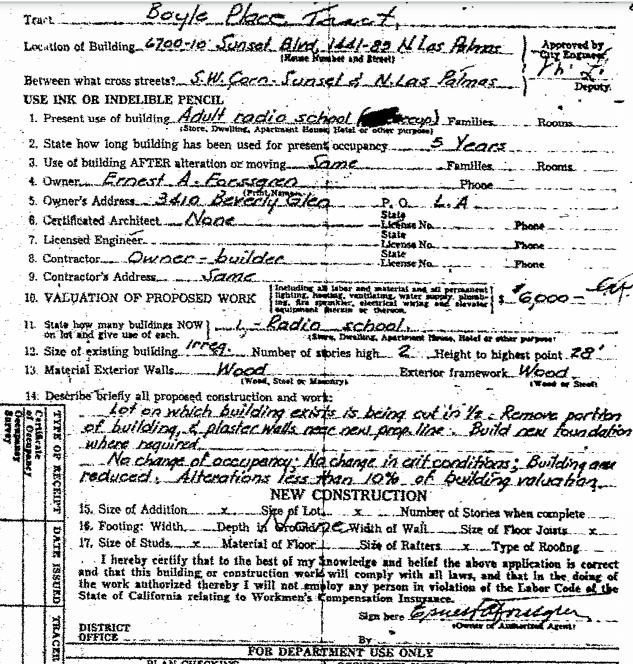 Tract Boyle Place Tract,
Location of Building 6700-10 Sunset Blvd, 1441-89 N Las Palmas
(House Number and Street)
Approved by
City Engineer
Deputy.
Between what cross streets? S.W. Corn. Sunset & N. Las Palmas
USE INK OR INDELIBLE PENCIL
1. Present use of building Adult radio school Families Rooms
(Store, Dwelling, Apartment House, Hotel or other purpose)
2. State how long building has been used for present occupancy 5 Years
3. Use of building AFTER alteration or moving Same Families Rooms
4. Owner Ernest A. Forssgren Phone
(Print Name)
5. Owner's Address 3410 Beverly Glen P. O. L.A
6. Certificated Architect None State License No. Phone
7. Licensed Engineer State License No. Phone
8. Contractor Owner-builder State License No. Phone
9. Contractor's Address Same
10. VALUATION OF PROPOSED WORK
Including all labor and material and all permanent
lighting, heating, ventilating, water supply, plumb-
ing, fire sprinkler, electrical wiring and elevator
equipment therein or thereon.
$ 6,000-
11. State how many buildings NOW on lot and give use of each. 1 - Radio school.
(Store, Dwelling, Apartment House, Hotel or other purpose)
12. Size of existing building Irreg. Number of stories high 2 Height to highest point 28'
13. Material Exterior Walls Wood Exterior framework Wood
(Wood, Steel or Masonry) (Wood or Steel)
14. Describe briefly all proposed construction and work:
Lot on which building exists is being cut in ½. Remove portion
of building, 2 plaster walls near new prop. line. Build new foundation
where required.
No change of occupancy; No change in exit conditions; Building area
reduced. Alterations less than 10% of building valuation.
NEW CONSTRUCTION
15. Size of Addition x Size of Lot x Number of Stories when complete
16. Footing: Width Depth in Ground None Width of Wall Size of Floor Joists x
17. Size of Studs x Material of Floor Size of Rafters x Type of Roofing
I hereby certify that to the best of my knowledge and belief the above application is correct
and that this building or construction work will comply with all laws, and that in the doing of
the work authorized thereby I will not employ any person in violation of the Labor Code of the
State of California relating to Workmen's Compensation Insurance.
Sign here
(Owner or Authorized Agent)
DISTRICT
OFFICE
By
FOR DEPARTMENT USE ONLY
PLAN CHECKING
Certificate
of Occupancy
Survey
TYPE OF RECEIPT
DATE ISSUED
TRACER